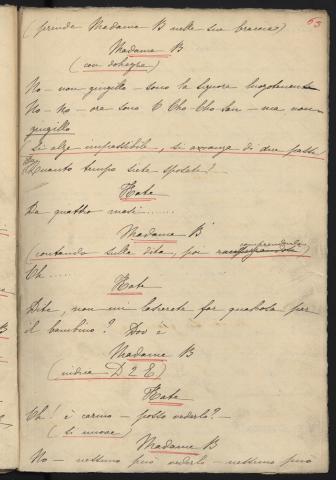 63
(prende Madame B nelle sue braccia)
Madame B
(con dolcezza)
No - non gingillo - sono la signora luogotenente
No - no - ora sono Cho-Cho-San - ma non
gingillo
(Si alza impassibile, si avanza di due passi)
Quanto tempo siete sposata?
Kate
Da quattro mesi......
Madame B
(contando sulle dita, poi comprendendo
Oh......
Kate
Dite, non mi lascerete far qualcosa per
il bambino? Dov è
Madame B
(indica D 2 E)
Kate
Oh! è carino - posso vederlo? -
(si muove)
Madame B
No - nessuno può vederlo - nessuno può